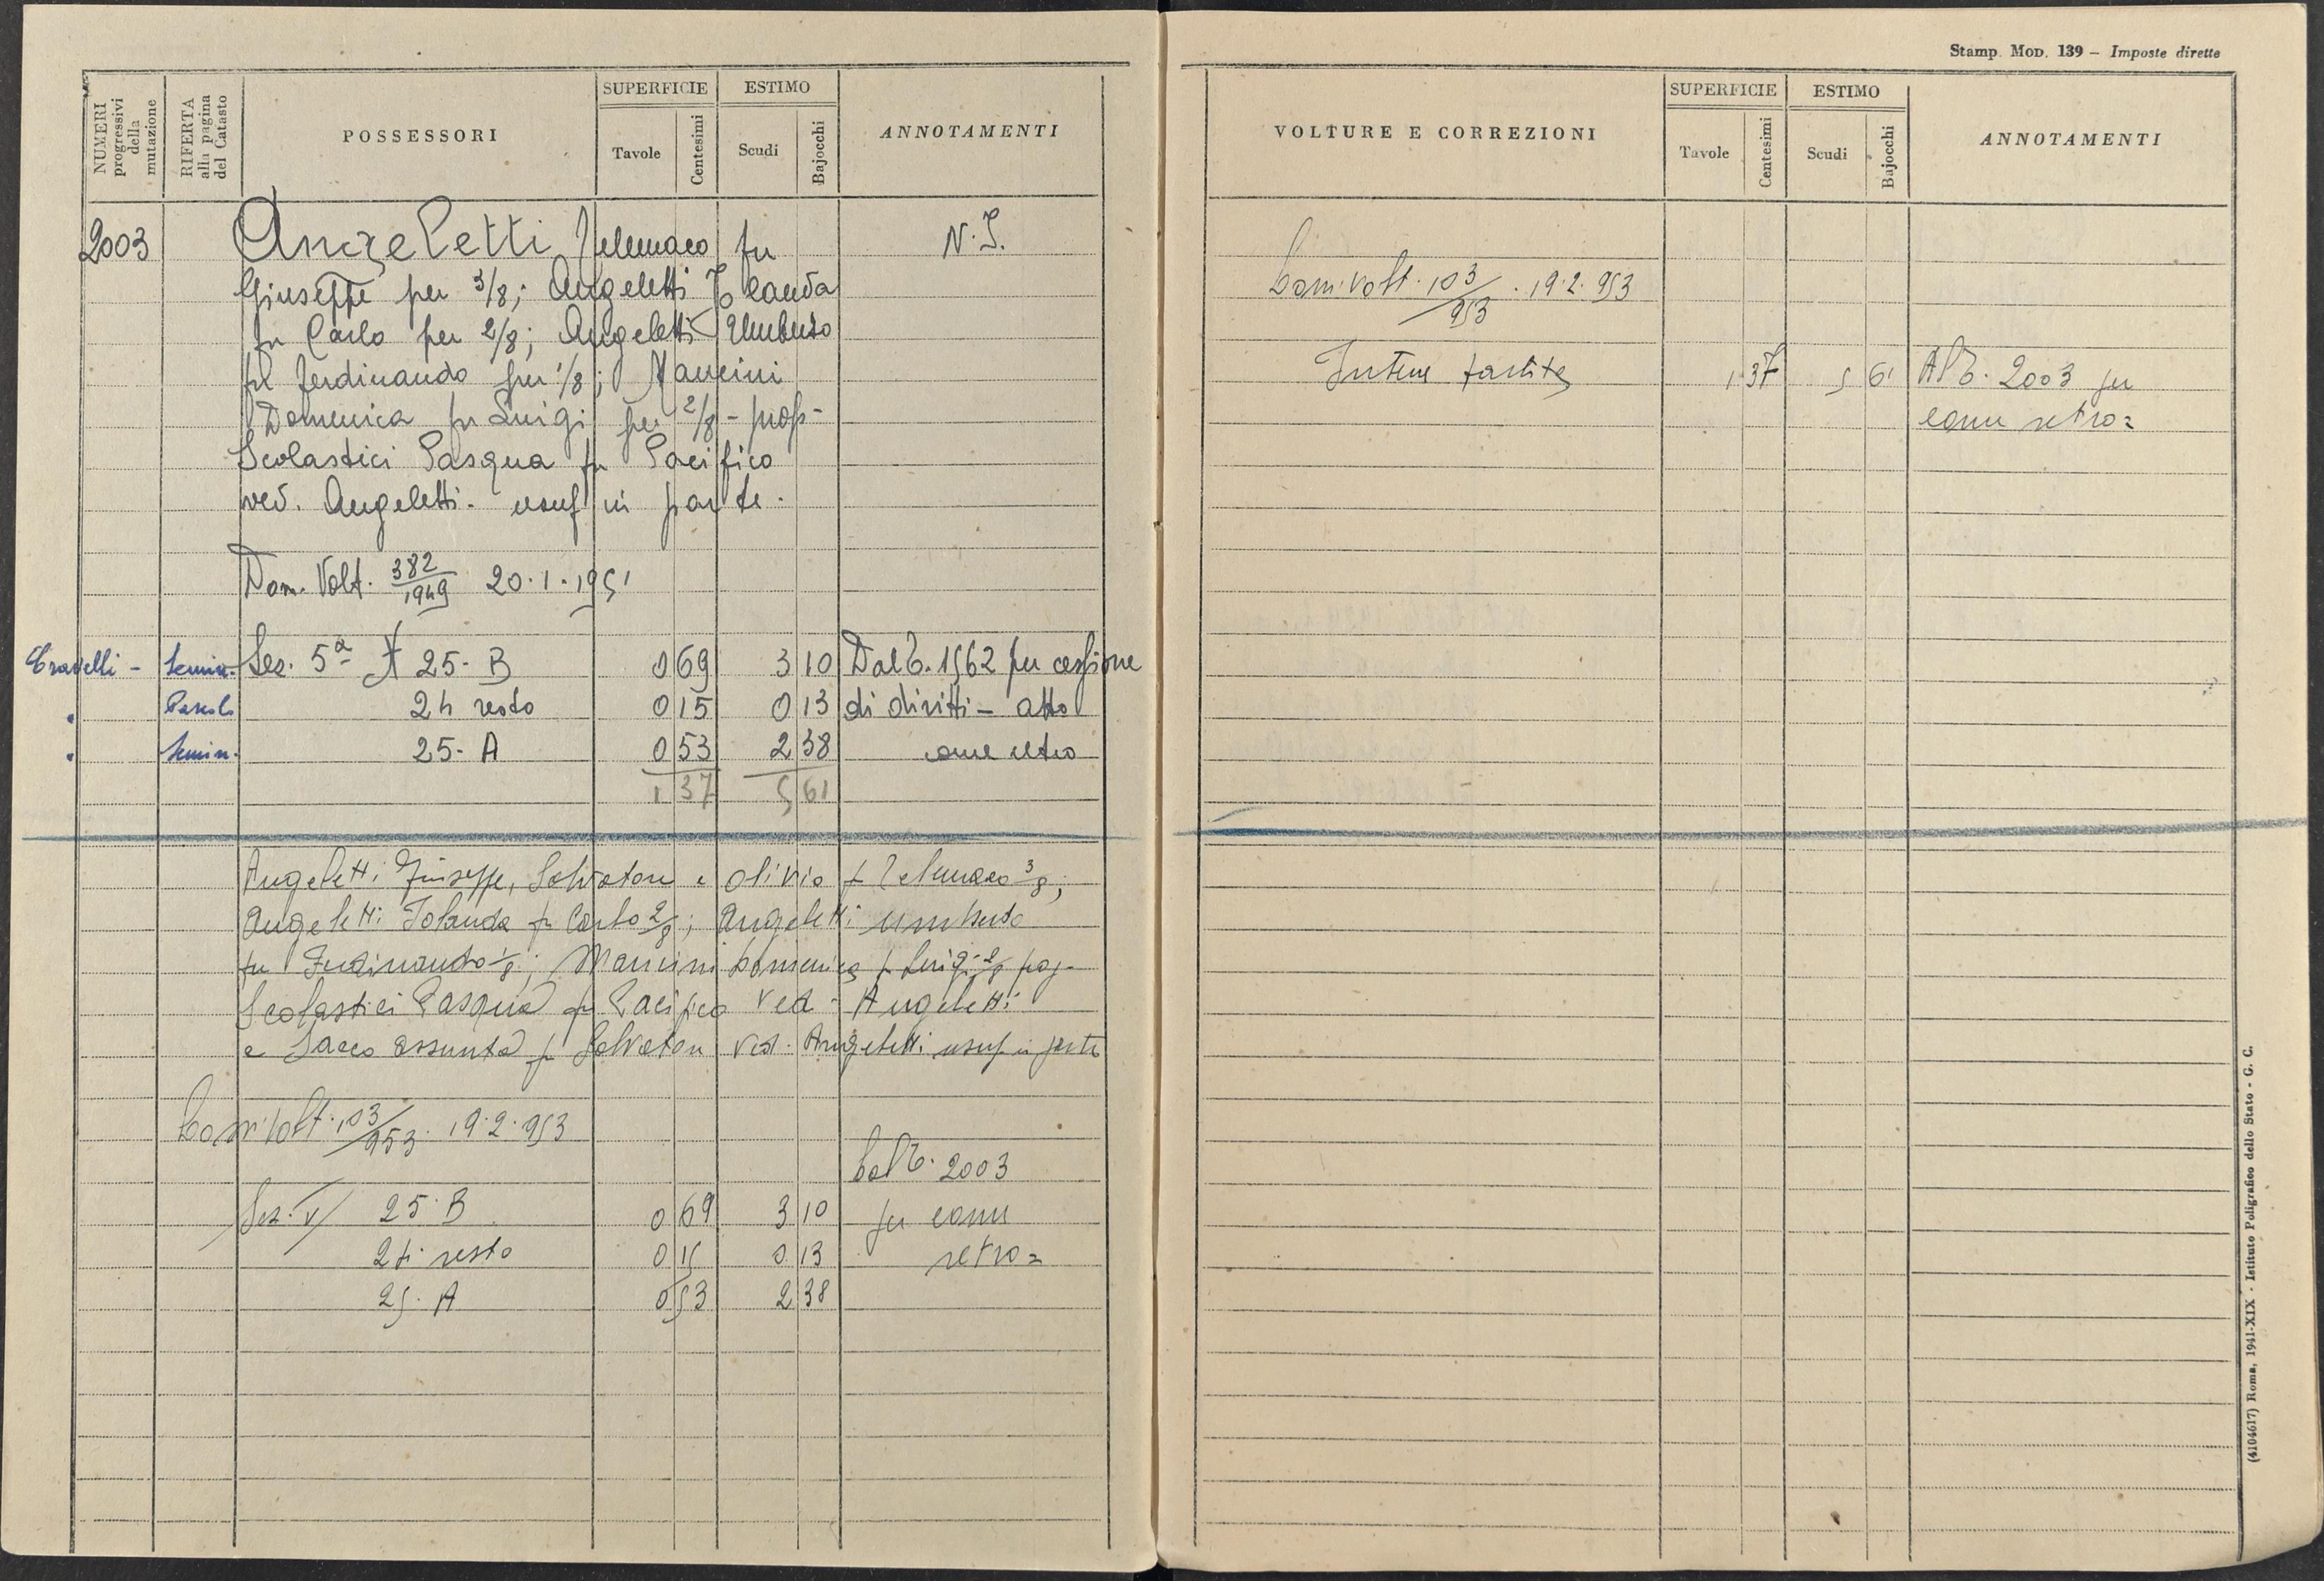 Stamp. Mod. 139 — Imposte dirette
NUMERI progressivi della mutazione
RIFERTA alla pagina del Catasto
POSSESSORI
SUPERFICIE
Tavole
Centesimi
ESTIMO
Scudi
Bajocchi
ANNOTAMENTI
2003 Angeletti Telemaco fu N.I.
Giuseppe per 3/8; Angeletti Jolanda
fu Carlo per 2/8; Angeletti Umberto
di Ferdinando per 1/8; Mancini
Domenica fu Luigi per 2/8 - prop-
Scolastici Pasqua fu Pacifico
ved. Angeletti - usuf in parte.
Dom. Volt. 382/1949 20.1.1951
Semin. Sez. 5ª 25-B 0 69 3 10 Dal T. 1562 per cessione
Pascolo 24 resto 0 15 0 13 di diritti - atto
Semin. 25-A 0 53 2 38 come retro
1 37 5 61
Angeletti Giuseppe, Salvatore e Olivia f Telemaco 3/8;
Angeletti Jolanda fu Carlo 2/8; Angeletti Umberto
fu Ferdinando 1/8; Mancini Domenica f Luigi 2/8 prop-
Scolastici Pasqua fu Pacifico ved - Angeletti
e Sacco Assunta f Salvatore ved. Angeletti usuf in parte
Dom. Volt. 103/953. 19.2.953
Dal T. 2003
Sez. V 25. B 0 69 3 10 per come
24 resto 0 15 0 13 retro=
25. A 0 53 2 38
VOLTURE E CORREZIONI
SUPERFICIE
Tavole
Centesimi
ESTIMO
Scudi
Bajocchi
ANNOTAMENTI
Dom. Volt. 103/953 . 19.2.953
Intera partita 1 37 5 61 Al T. 2003 per
come retro=
(4104617) Roma, 1941-XIX - Istituto Poligrafico dello Stato - G. C.